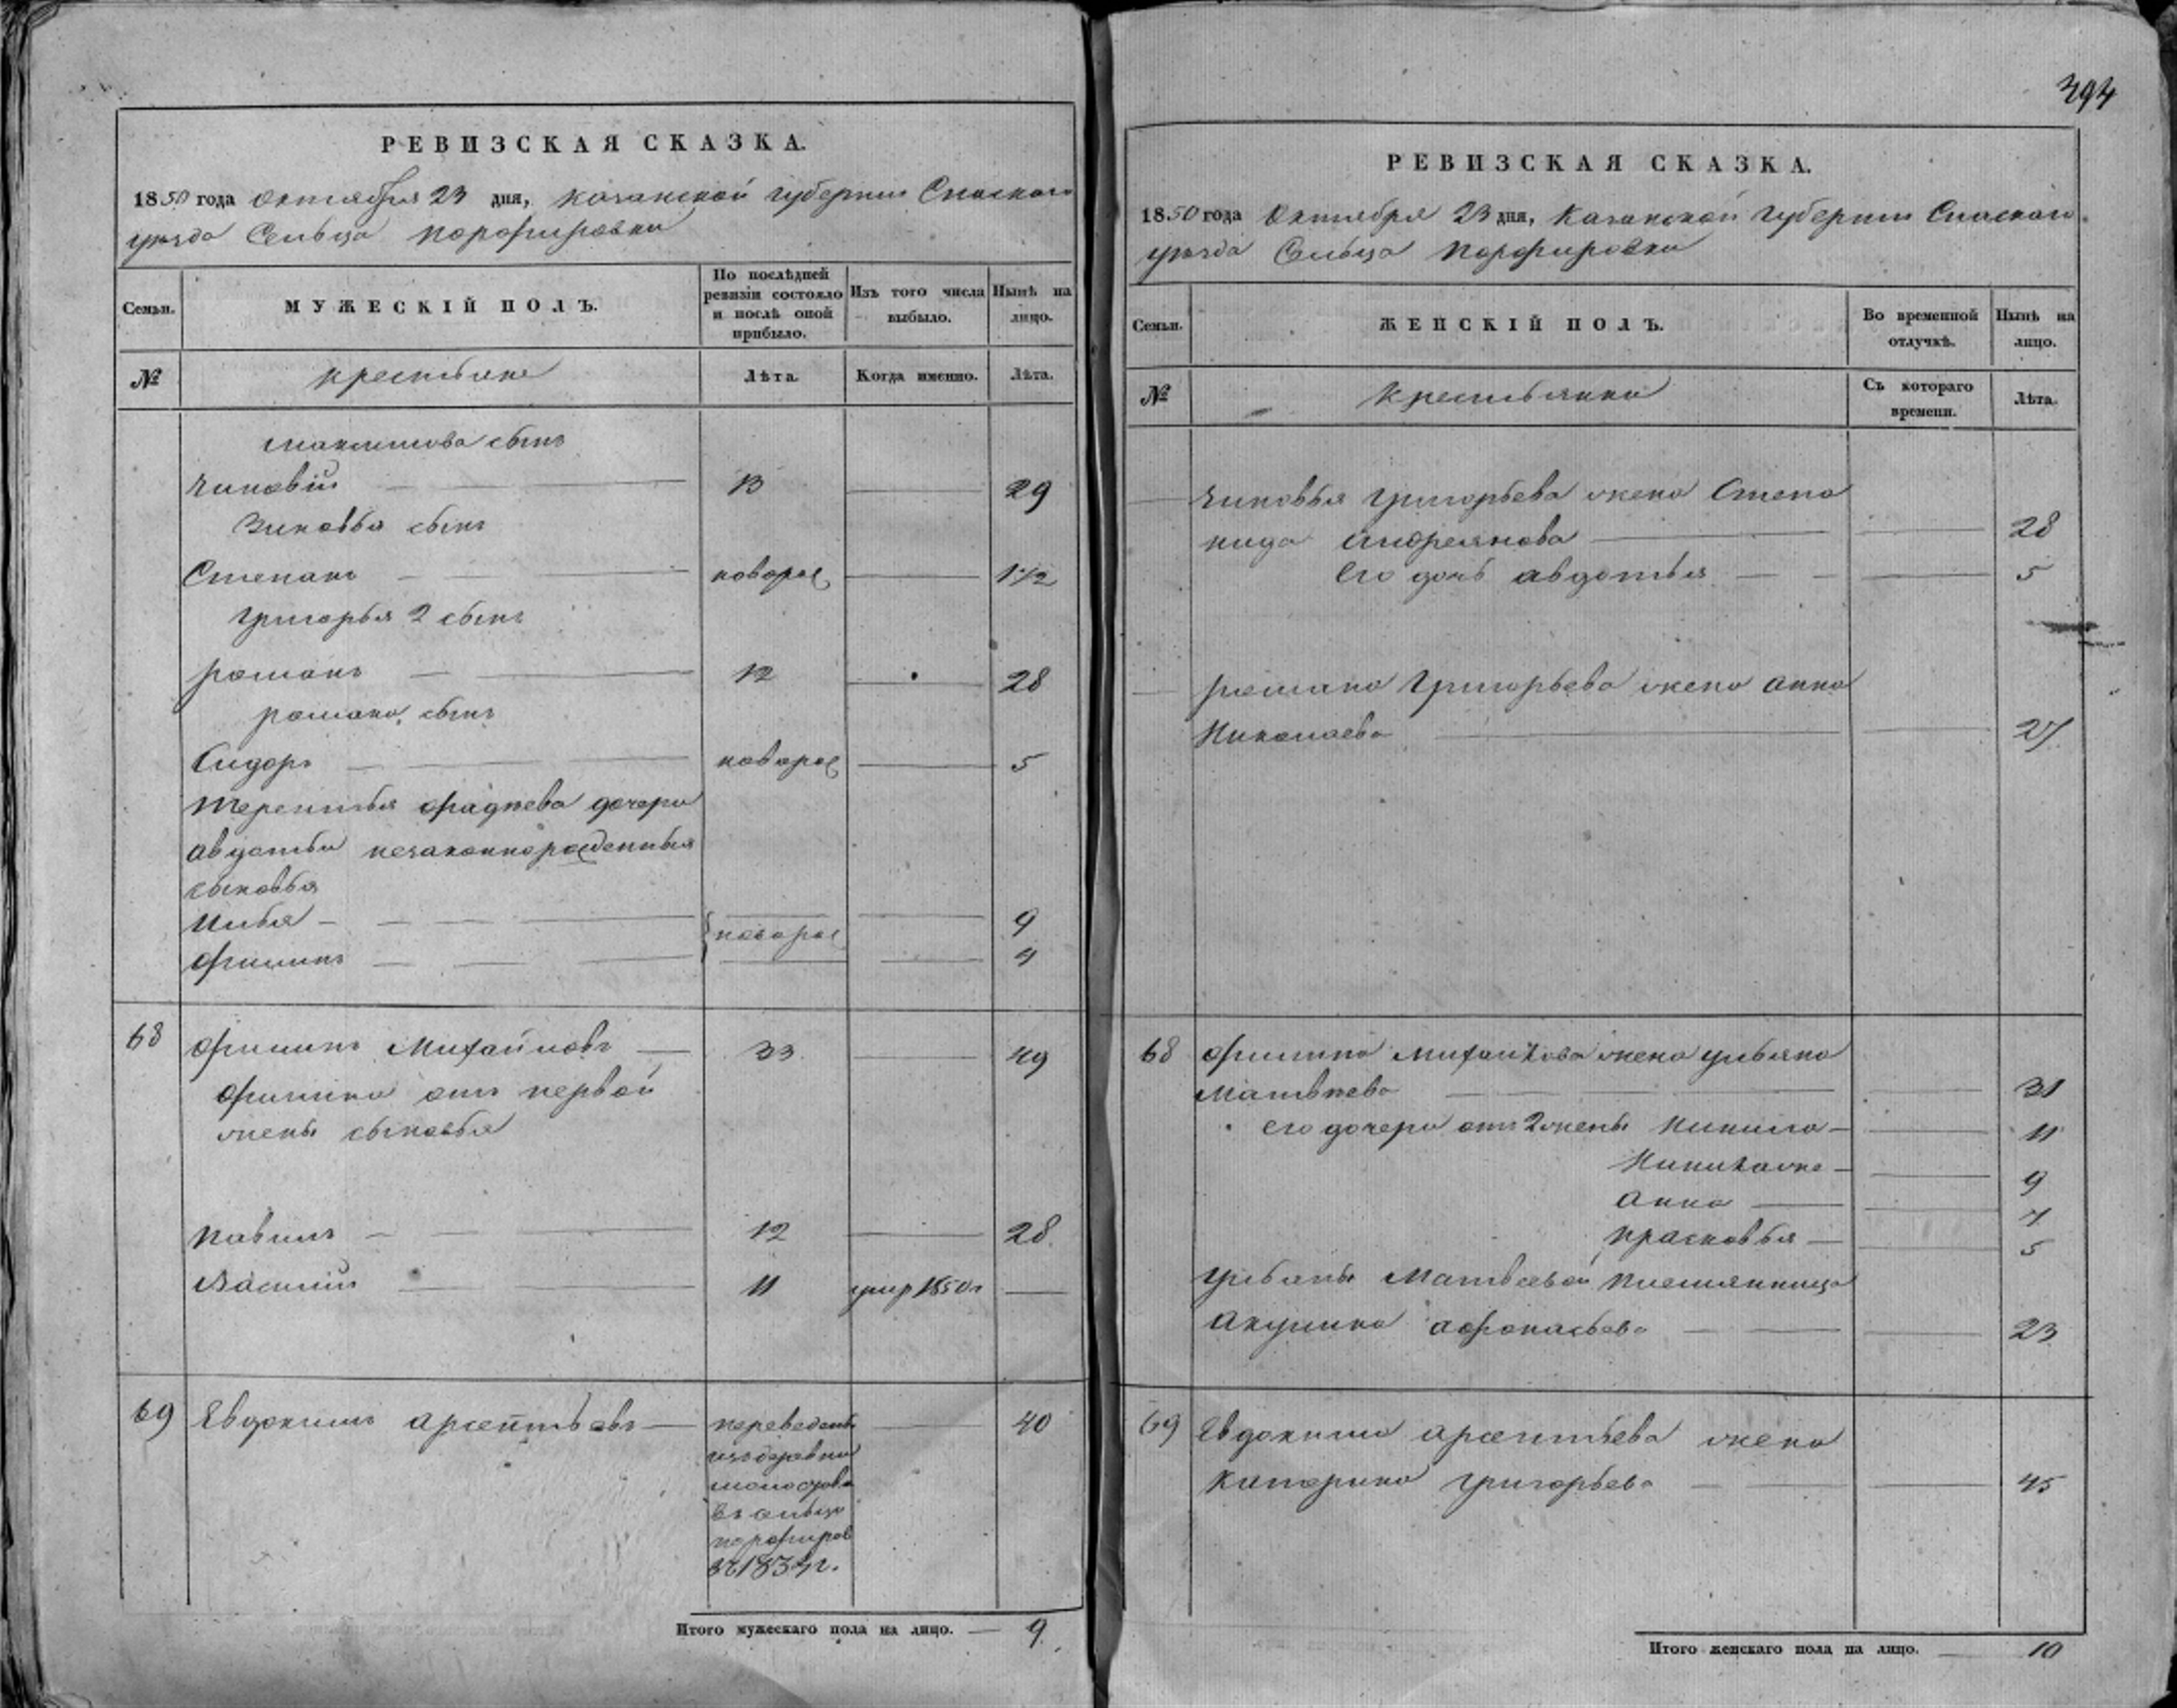 394
РЕВИЗСКАЯ СКАЗКА.
1850 года Октября 23 дня, Казанской губернии Спаскаго
уѣзда Сельца Порфировки
Семьи.
МУЖЕСКІЙ ПОЛЪ.
По послѣдней ревизіи состояло и послѣ оной прибыло.
Изъ того числа выбыло.
Нынѣ на лицо.
№
крестьяне
Лѣта.
Когда именно.
Лѣта.
сынъ
Зиновій 13 29
Зиновья сынъ
Степанъ новорож 1 1/2
Григорья 2 сынъ
Романъ 12 28
Романа сынъ
Сидоръ новорож 5
Терентья Фадѣева дочери
Авдотьи незаконнорожденныя
сыновья
Илья 9
новорож
Филипъ 4
68 Филипъ Михайловъ 33 49
Филипа отъ первой
жены сыновья
Павилъ 12 28
Василий 11 умер 1850 г
69 Евдокимъ Арсентьевъ переведенъ 40
изъ деревни
въ сельцо
порфиров
въ 1834 г.
Итого мужескаго пола на лицо. 9.
РЕВИЗСКАЯ СКАЗКА.
1850 года Октября 23 дня, Казанской губернии Спаскаго
уѣзда Сельца Порфировки
Семьи.
ЖЕНСКІЙ ПОЛЪ.
Во временной отлучкѣ.
Нынѣ на лицо.
№
Крестьянки
Съ котораго времени.
Лѣта.
Зиновья Григорьева жена Степа
нида Андреянова 28
Его дочь Авдотья 5
Романа Григорьева жена Анна
Николаева 27
68 Филипа Михайлова жена Ульяна
Матвѣева 31
его дочери отъ 2 жены 11
9
Анна 7
Прасковья 5
Ульяны Матвеевой племянница
Акулина Афонасьева 23
69 Евдокима Арсентьева жена
Катерина Григорьева 45
Итого женскаго пола на лицо. 10